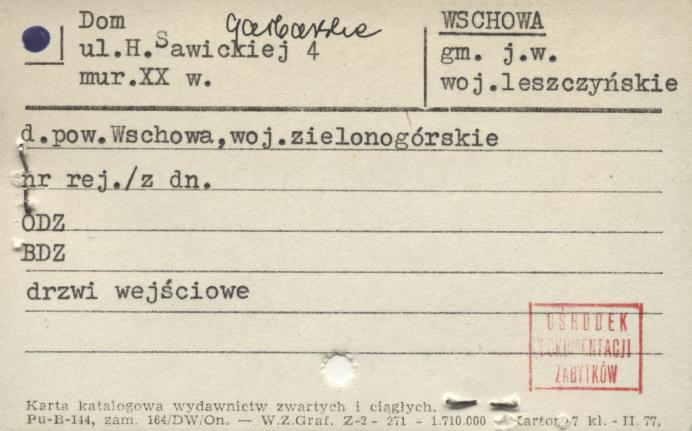 Dom Garbarska
ul.H.Sawickiej 4
mur.XX w.
WSCHOWA
gm. j.w.
woj.leszczyńskie
d.pow.Wschowa,woj.zielonogórskie
nr rej./z dn.
ODZ
BDZ
drzwi wejściowe
OŚRODEK
DOKUMENTACJI
ZABYTKÓW
Karta katalogowa wydawnictw zwartych i ciągłych.
Pu-B-144, zam. 164/DW/On. — W.Z.Graf. Z-2 - 271 - 1.710.000 Karton 7 kl. - II. 77,